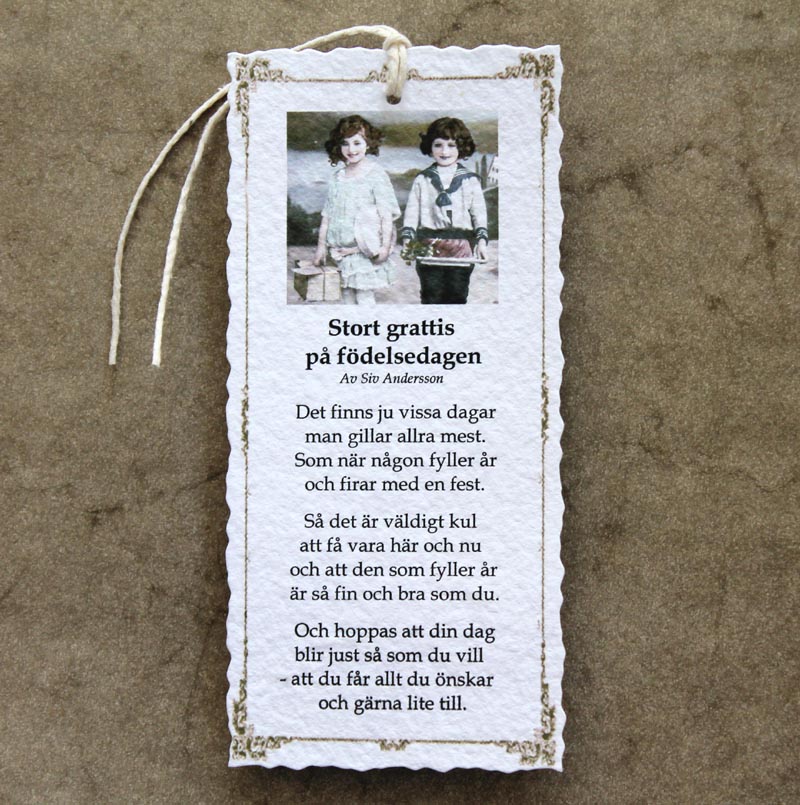 Stort grattis
på födelsedagen
Av Siv Andersson
Det finns ju vissa dagar
man gillar allra mest.
Som när någon fyller år
och firar med en fest.
Så det är väldigt kul
att få vara här och nu
och att den som fyller år
är så fin och bra som du.
Och hoppas att din dag
blir just så som du vill
- att du får allt du önskar
och gärna lite till.